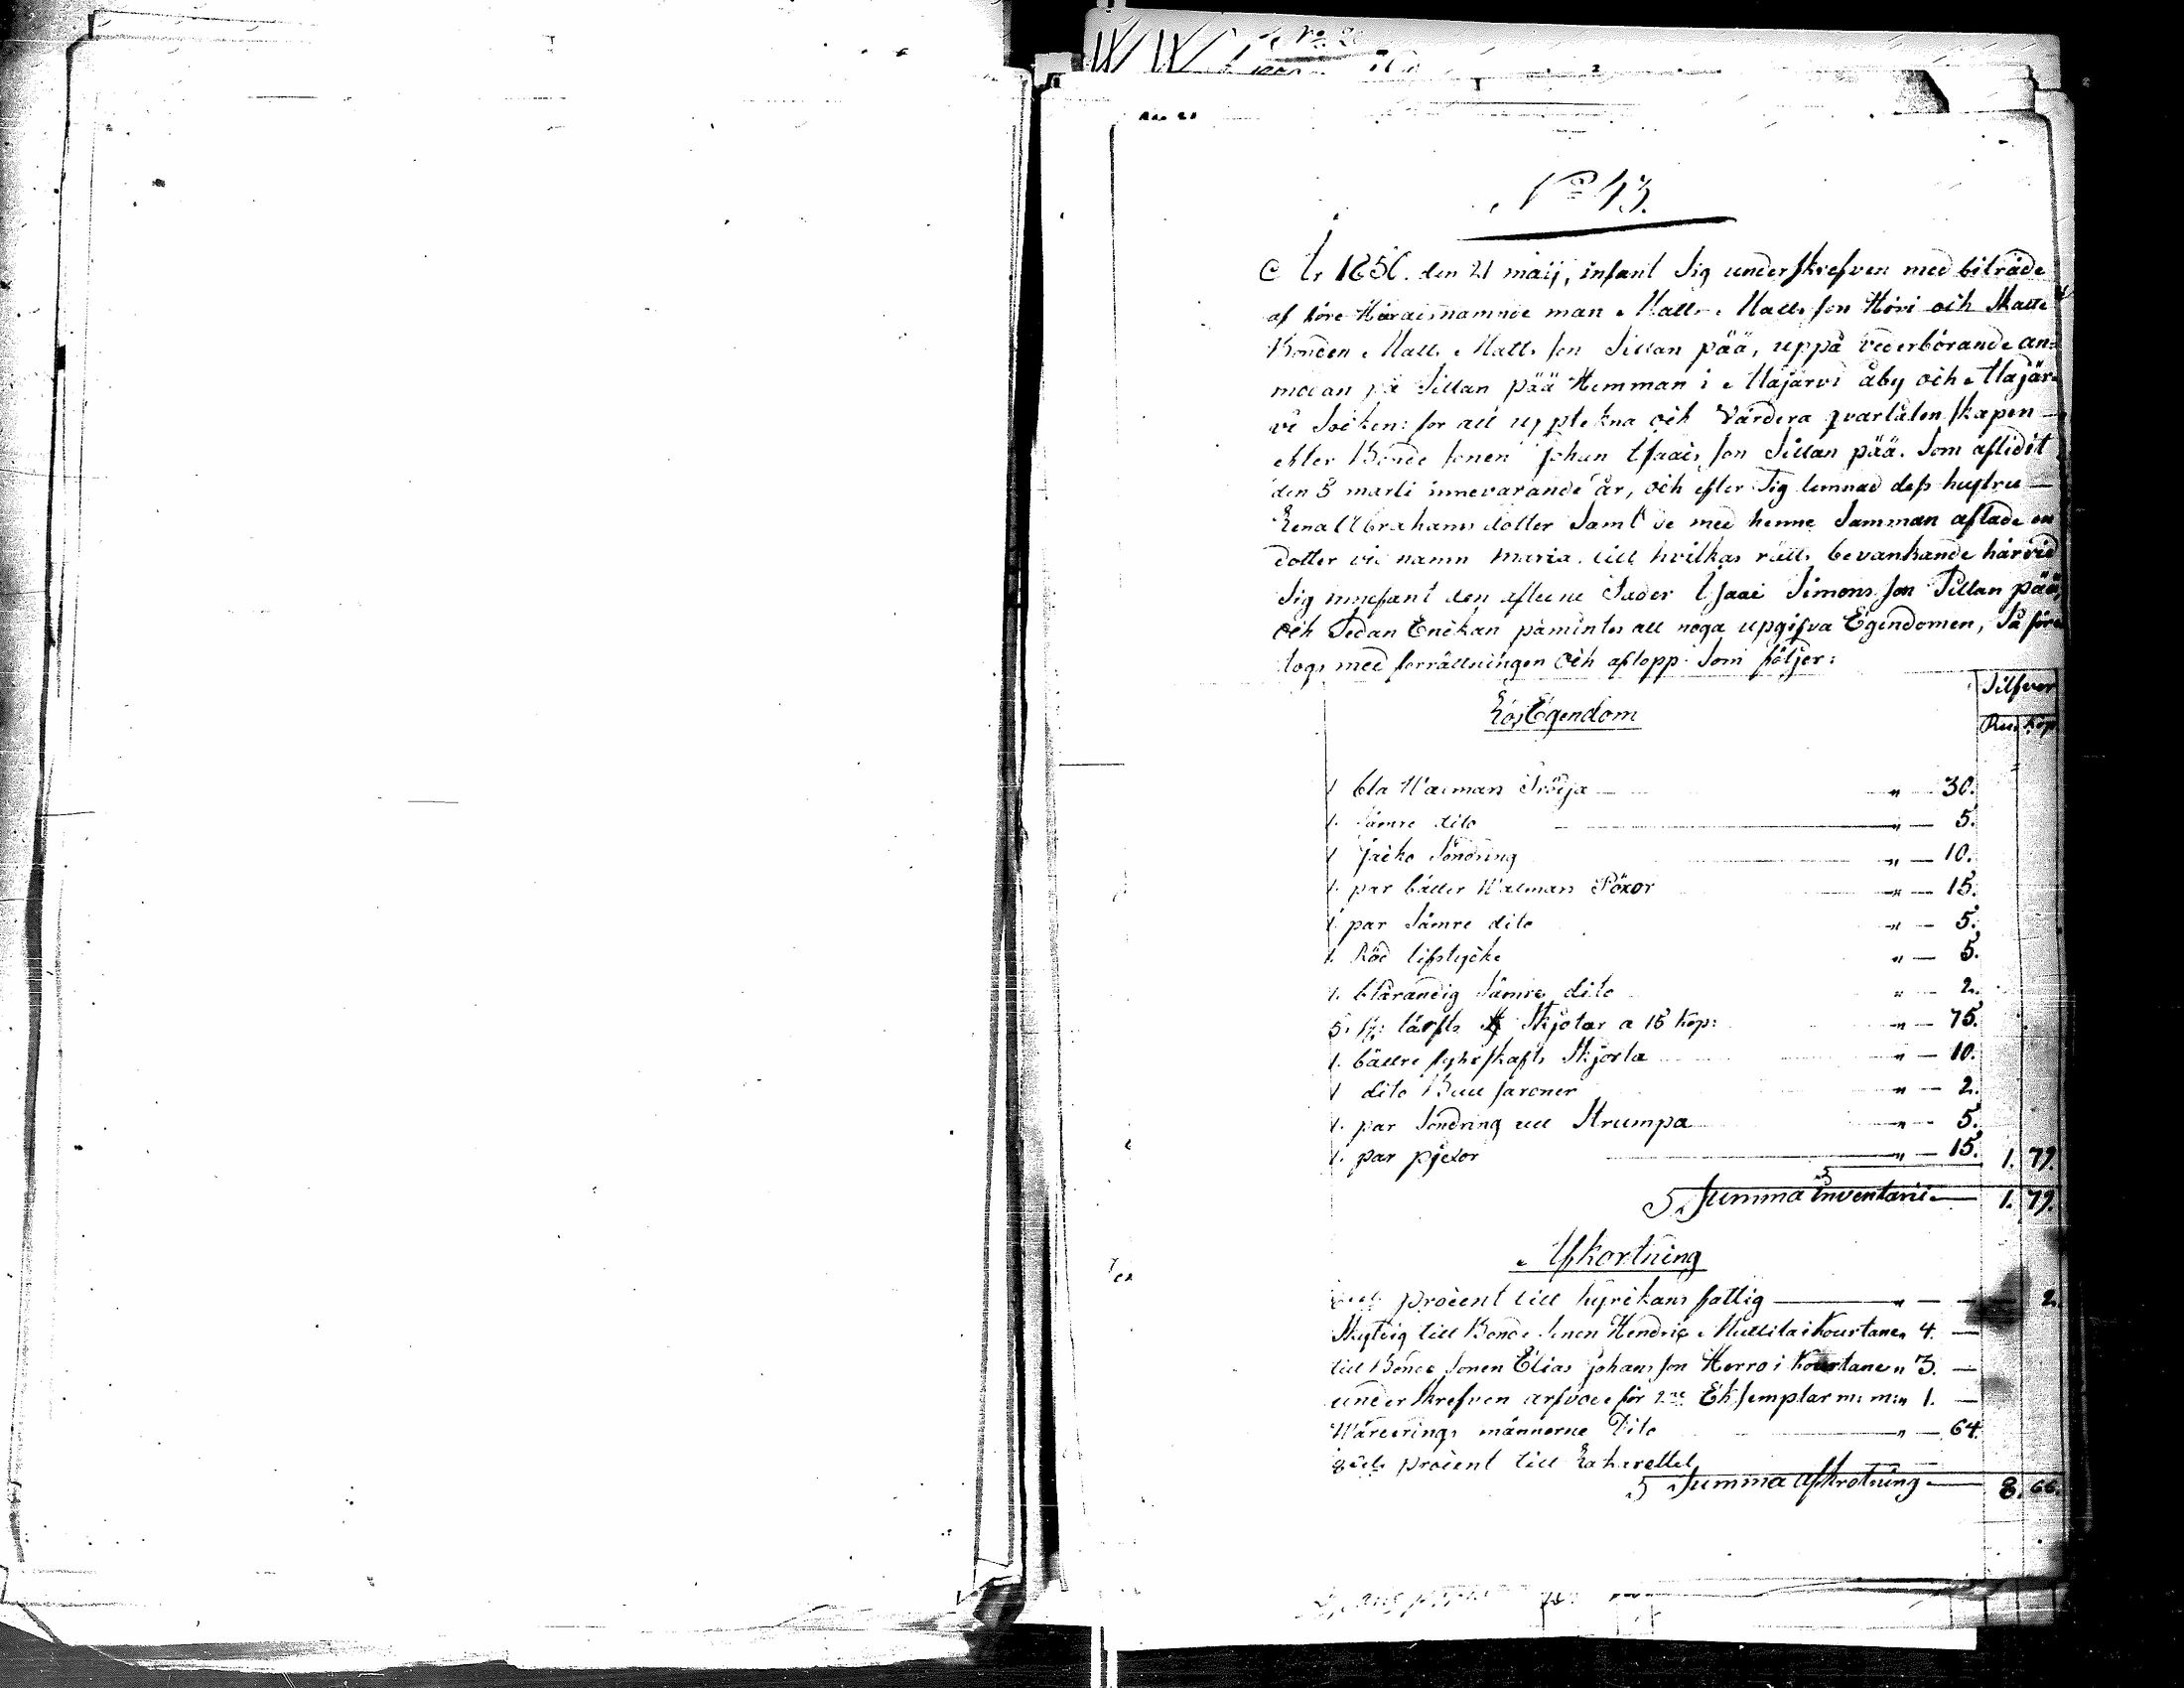 No 43.
År 1850. den 21 maij, infant Sig underskrefven med biträde
af före Häradsnämnde man Matts Matts son Höri och Skatte
Bonden Matts Matts son Sillan pää, uppå vederbörande an=
modan på Sillan pää Hemman i Alajärvi åby och Alajär=
vi Socken: för att upptekna och Värdera qvarlåtenskapen
efter Bonde sonen Johan Isaacs son Sillan pää. Som aflidit
den 5 marti innevarande år, och efter Sig lemnad dess hustru
Lena Abrahams dotter Samt de med henne Samman aflade en
dotter vid namn Maria. till hvilkas rätts bevankande härvid
Sig innefant den aflidne Fader Isaac Simons son Sillan pää,
och Sedan Enckan påmintes att noga upgifva Egendomen, Så före
togs med förrättningen och aflopp. Som följer:
Silfver
Lös Egendom
Rub Kop
1 blå Walmars Tröija " 30.
1. Sämre dito " 5.
1 Jacko Söndring " 10.
1. par bätter Walmars Böxor " 15.
1. par Sämre dito " 5.
1. Röd lifstycke " 5.
1. blårandig Sämre dito " 2.
5. st: lärfts Skjotar a 15 kop: " 75.
1. bättre fyhrskafts Skjorta " 10.
1 dito " 2.
1. par Söndring ull Strumpa " 5.
1. par pjexor " 15. 1. 79.
Summa inventarii 1. 79.
Afkortning
procent till kyrckans fattig " 2.
Skyldig till Bonde sonen Hendric Mullila i Kourtane " 4.
till Bonde sonen Elias Johans son Herro i Kourtane " 3.
underskrefven arfvode för 2ne Eksemplar m: m: " 1.
Wärderings männerne Dito " 64.
procent till
Summa afkrotning 8. 66.